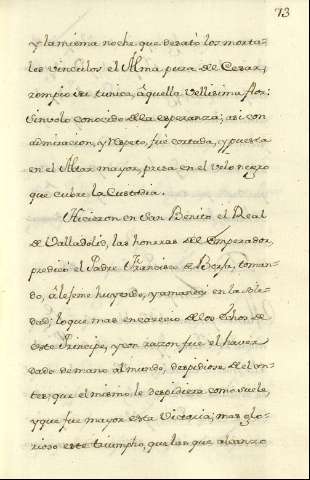 73
y la misma noche que desató los morta-
les vinculos el Alma pura de Cesar,
rompio su tunica, áquella vellisima flor:
simvolo conocido de la esperanza; asi con
admiracion, y respeto, fue cortada, y puesta
en el Altar mayor, presa en el velo negro
que cubre la Custodia.
Hicieron en San Benito el Real
de Valladolid, las honrras del Emperador,
predicó el Padre Francisco de Borja, toman-
do, elefeme huyendo, y amaneci en la Sole-
dad; lo que mas encarecio de los hhos de
este Principe, y con razon fue el haver
dado de mano al mundo, despidiose del an-
tes, que el mismo le despidiera como suele,
y que fue mayor esta Victoria, mas glo-
rioso este triumpho, que los que alcanzó